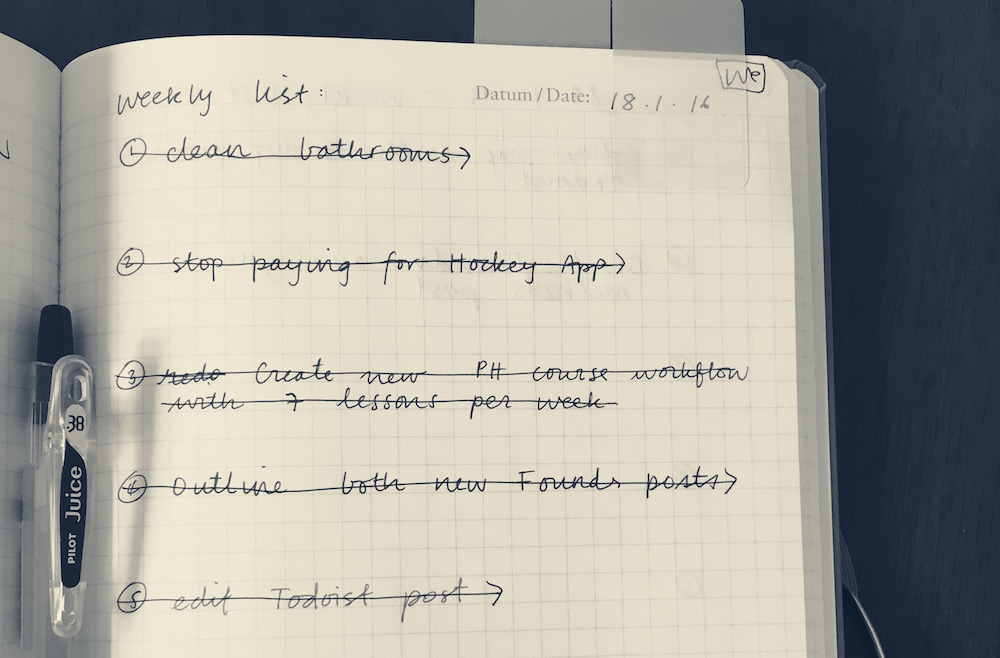 We
weekly list:
Datum/Date: 18.1.16
① clean bathrooms
② stop paying for Hockey App
③ redo Create new PH course workflow
with 7 lessons per week
④ outline both new Founds posts
⑤ edit Todoist post
38
Juice
PILOT